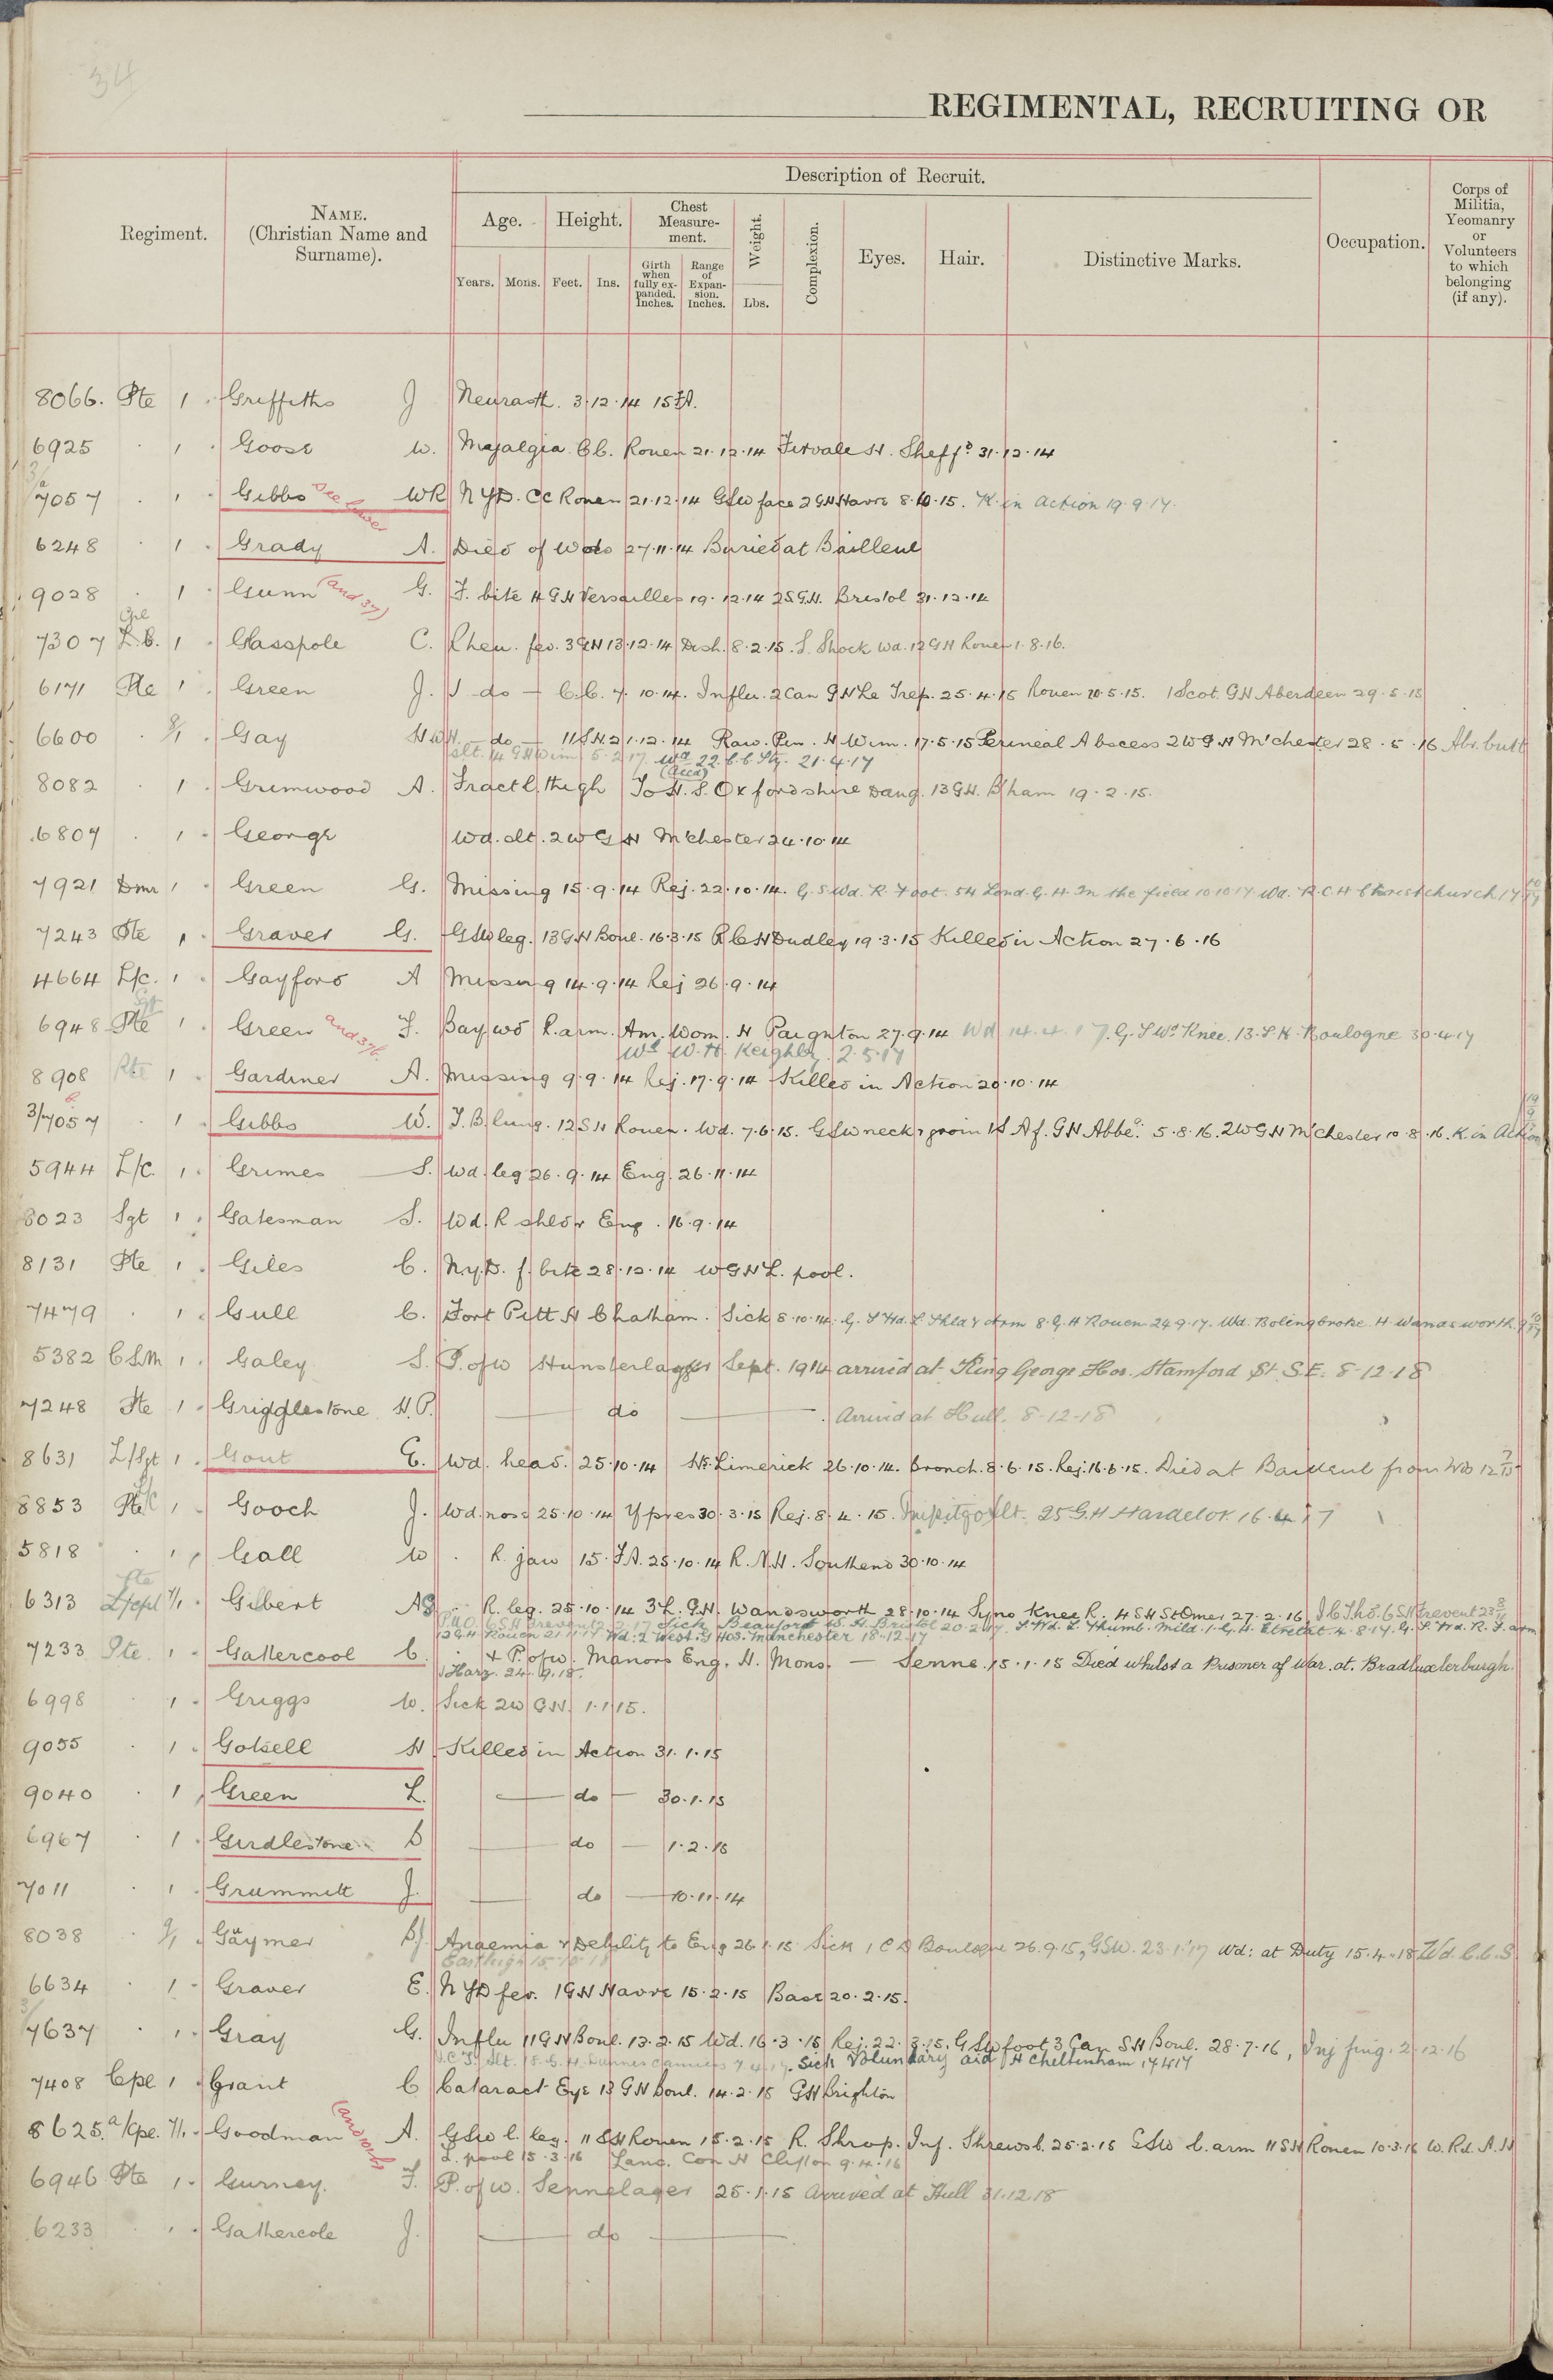 34
REGIMENTAL, RECRUITING OR
Regiment.
NAME.
(Christian Name and
Surname).
Description of Recruit.
Age.
Height.
Chest
Measure-
ment.
Weight.
Complexion.
Eyes.
Hair.
Distinctive Marks.
Occupation.
Corps of
Militia,
Yeomanry
or
Volunteers
to which
belonging
(if any).
Years.
Mons.
Feet.
Ins.
Girth
when
fully ex-
panded.
Inches.
Range
of
Expan-
sion.
Inches.
Lbs.
8066. Pte 1 Griffiths J Neurasth. 3.12.14 15 FA.
6925 1 Goose W. Myalgia C.C. Rouen 21.12.14 Firvale H. Sheffd 31.12.14
3/7057 1 Gibbs see lower WR NYD. CC Rouen 21.12.14 GSW face 2 GH Havre 8.10.15. K. in Action 19.9.17.
6248 1 Grady A. Died of Wds 27.11.14 Buried at Bailleul
9028 1 Gunn (and 37) G. F. bite 4 GH Versailles 19.12.14 2SGH. Bristol 31.12.14
Cpl
7307 L.C. 1 Glasspole C. Rheu. fev. 3 GH 13.12.14 Disch. 8.2.15. S. Shock Wd. 12 GH Rouen 1.8.16.
6171 Pte 1 Green J. I do C.C. 7.10.14. Influ. 2 Can GH Le Trep. 25.4.15 Rouen 20.5.15. 1 Scot. GH Aberdeen 29.5.15
6600 8/1 Gay HWH. do 11 SH 21.12.14 Raw. Pen. H Wim. 17.5.15 Perineal Abscess 2WGH M'chester 28.5.16 Abs. butt
slt. 14 GH Wim 5.2.17. Wd 22 C.C. Stg. 21.4.17
(Accd)
8082 1 Grimwood A. Fract l. thigh To H.S. Oxfordshire Dang. 13 GH. B'ham 19.2.15.
6807 1 George Wd. slt. 2WGH M'chester 24.10.14
7921 Dmr 1 Green G. Missing 15.9.14 Rej. 22.10.14. G.S Wd. R. Foot. 54 Lond. G.H. In the field 10.10.17 Wd. R.C.H Christchurch 17 10/17
7243 Pte 1 Graver G. GSW leg. 13 GH Boul. 16.3.15 R C H Dudley 19.3.15 Killed in Action 27.6.16
4664 L/c. 1 Gayford A Missing 14.9.14 Rej 26.9.14
Sgt
6948 Pte 1 Green and 37b. F. Bay wd R. arm. Am. Wom. H Paignton 27.9.14 Wd 14.4.17. G.S Wd Knee. 13.S.H. Boulogne 30.4.17
Wd W.H. Keighley. 2.5.17
8908 Pte 1 Gardiner A. Missing 9.9.14 Rej. 17.9.14 Killed in Action 20.10.14
3/7057 1 Gibbs W. T.B. lung. 12 SH Rouen. Wd. 7.6.15. GSW neck & groin 1 S Af. GH Abbe. 5.8.16. 2WGH M'chester 10.8.16. K. in Action 19/9/17
5944 L/C 1 Grimes S. Wd. leg 26.9.14 Eng. 26.11.14
8023 Sgt 1 Gatesman S. Wd. R shldr Eng. 16.9.14
8131 Pte 1 Giles C. N.y.D. f. bite 28.12.14 WGH L. pool.
7479 1 Gull C. Fort Pitt H Chatham. Sick 8.10.14. G.S Wd. L. Shld & Arm 8.G.H Rouen 24.9.17. Wd. Bolingbroke. H. Wandsworth.
5382 C S.M 1 Galey S. P. of W Munsterlager Sept. 1914 arrived at King George Hos. Stamford St. S.E. 8-12-18
7248 Pte 1 Grigglestone H.P. do Arrived at Hull. 8-12-18
8631 L/Sgt 1 Gout E. Wd. head. 25.10.14 Hs. Limerick 26.10.14. bronch. 8.6.15. Rej. 16.6.15. Died at Bailleul from Wds 12 7/15
L/C
8853 Pte 1 Gooch J. Wd. nose 25.10.14 Ypres 30.3.15 Rej. 8.4.15. Impitgo slt. 25 G.H Hardelot. 16.4.17
5818 1 Gall W R. jaw 15. FA. 25.10.14 R.N.H. Southend 30.10.14
Pte
6313 L/cpl 7/1 Gilbert AG R. leg. 25.10.14 3 L. GH. Wandsworth 28.10.14 Syno Knee R. 4 SH St Omer 27.2.16. 6 SH Frevent
P.U.O. 6 SH Frevent 17 Sick Beaufort W. H. Bristol 20.2.17 S. Wd. L. Thumb. Mild. 1.G.H. Etretat 4.8.17. G.S. Wd. R. F. arm
12 GH Rouen 21.11.17 Wd: 2 West. G Hos. Manchester 18.12.17
7233 Pte 1 Gathercool C. & P. of W. Manors Eng. H. Mons. — Senne 15.1.15 Died whilst a Prisoner of War at
Harz. 24.9.18.
6998 1 Griggs W. Sick 2W GH. 1.1.15.
9055 1 Gotsell H Killed in Action 31.1.15
9040 1 Green L. do 30.1.15
6967 1 Girdlestone D do 1.2.15
7011 1 Grummitt J. do 10.11.14
8038 9/1 Gaymer Anaemia & Debility to Eng 26.1.15 Sick 1 C D Boulogne 26.9.15, GSW. 23.1.17 Wd: at Duty 15.4.18 Wd. C.C.S
6634 1 Graver E. NYD fev. 1 GH Havre 15.2.15 Base 20.2.15.
3/7637 1 Gray G. Influ 11 GH Boul. 13.2.15 Wd. 16.3.15 Rej. 22.3.15. GSW foot 3 Can SH Boul. 28.7.16, Inj fing. 2.12.16
Sick Voluntary aid H Cheltenham 17417
7408 Cpl 1 Grant C Cataract Eye 13 GH Boul. 14.2.15 GH Brighton
8625. a/Cpl. 7/1 Goodman A. GSW l. leg. 11 SH Rouen 15.2.15 R. Shrop. Inf. Shrewsb. 25.2.15 GSW l. arm 11 SH Rouen 10.3.16 W. Rd. A.H
L. pool 15.3.16 Lanc. Con H Clifton 9.4.16
6946 Pte 1 Gurney. F. P. of W. Sennelager 25.1.15 Arrived at Hull 31.12.18
6233 1 Gathercole J. do